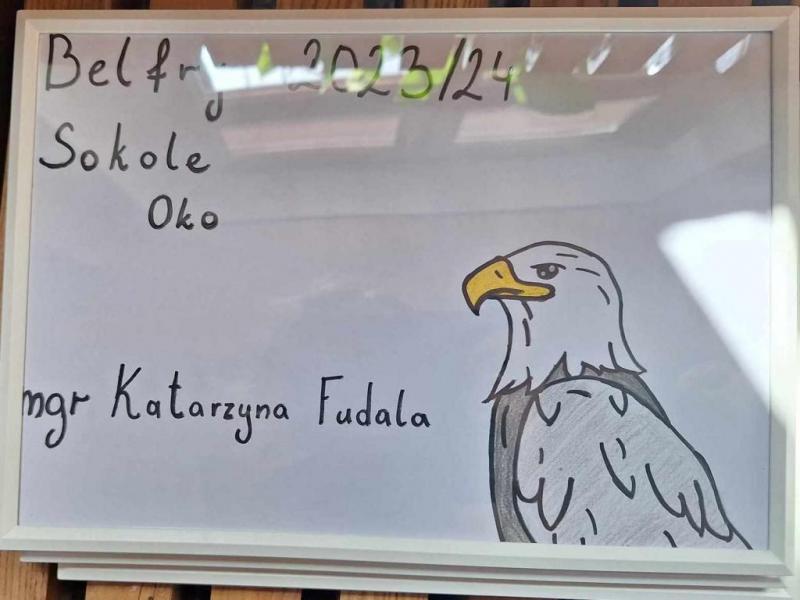 Belfry 2023/24
Sokole
Oko
mgr Katarzyna Fudala